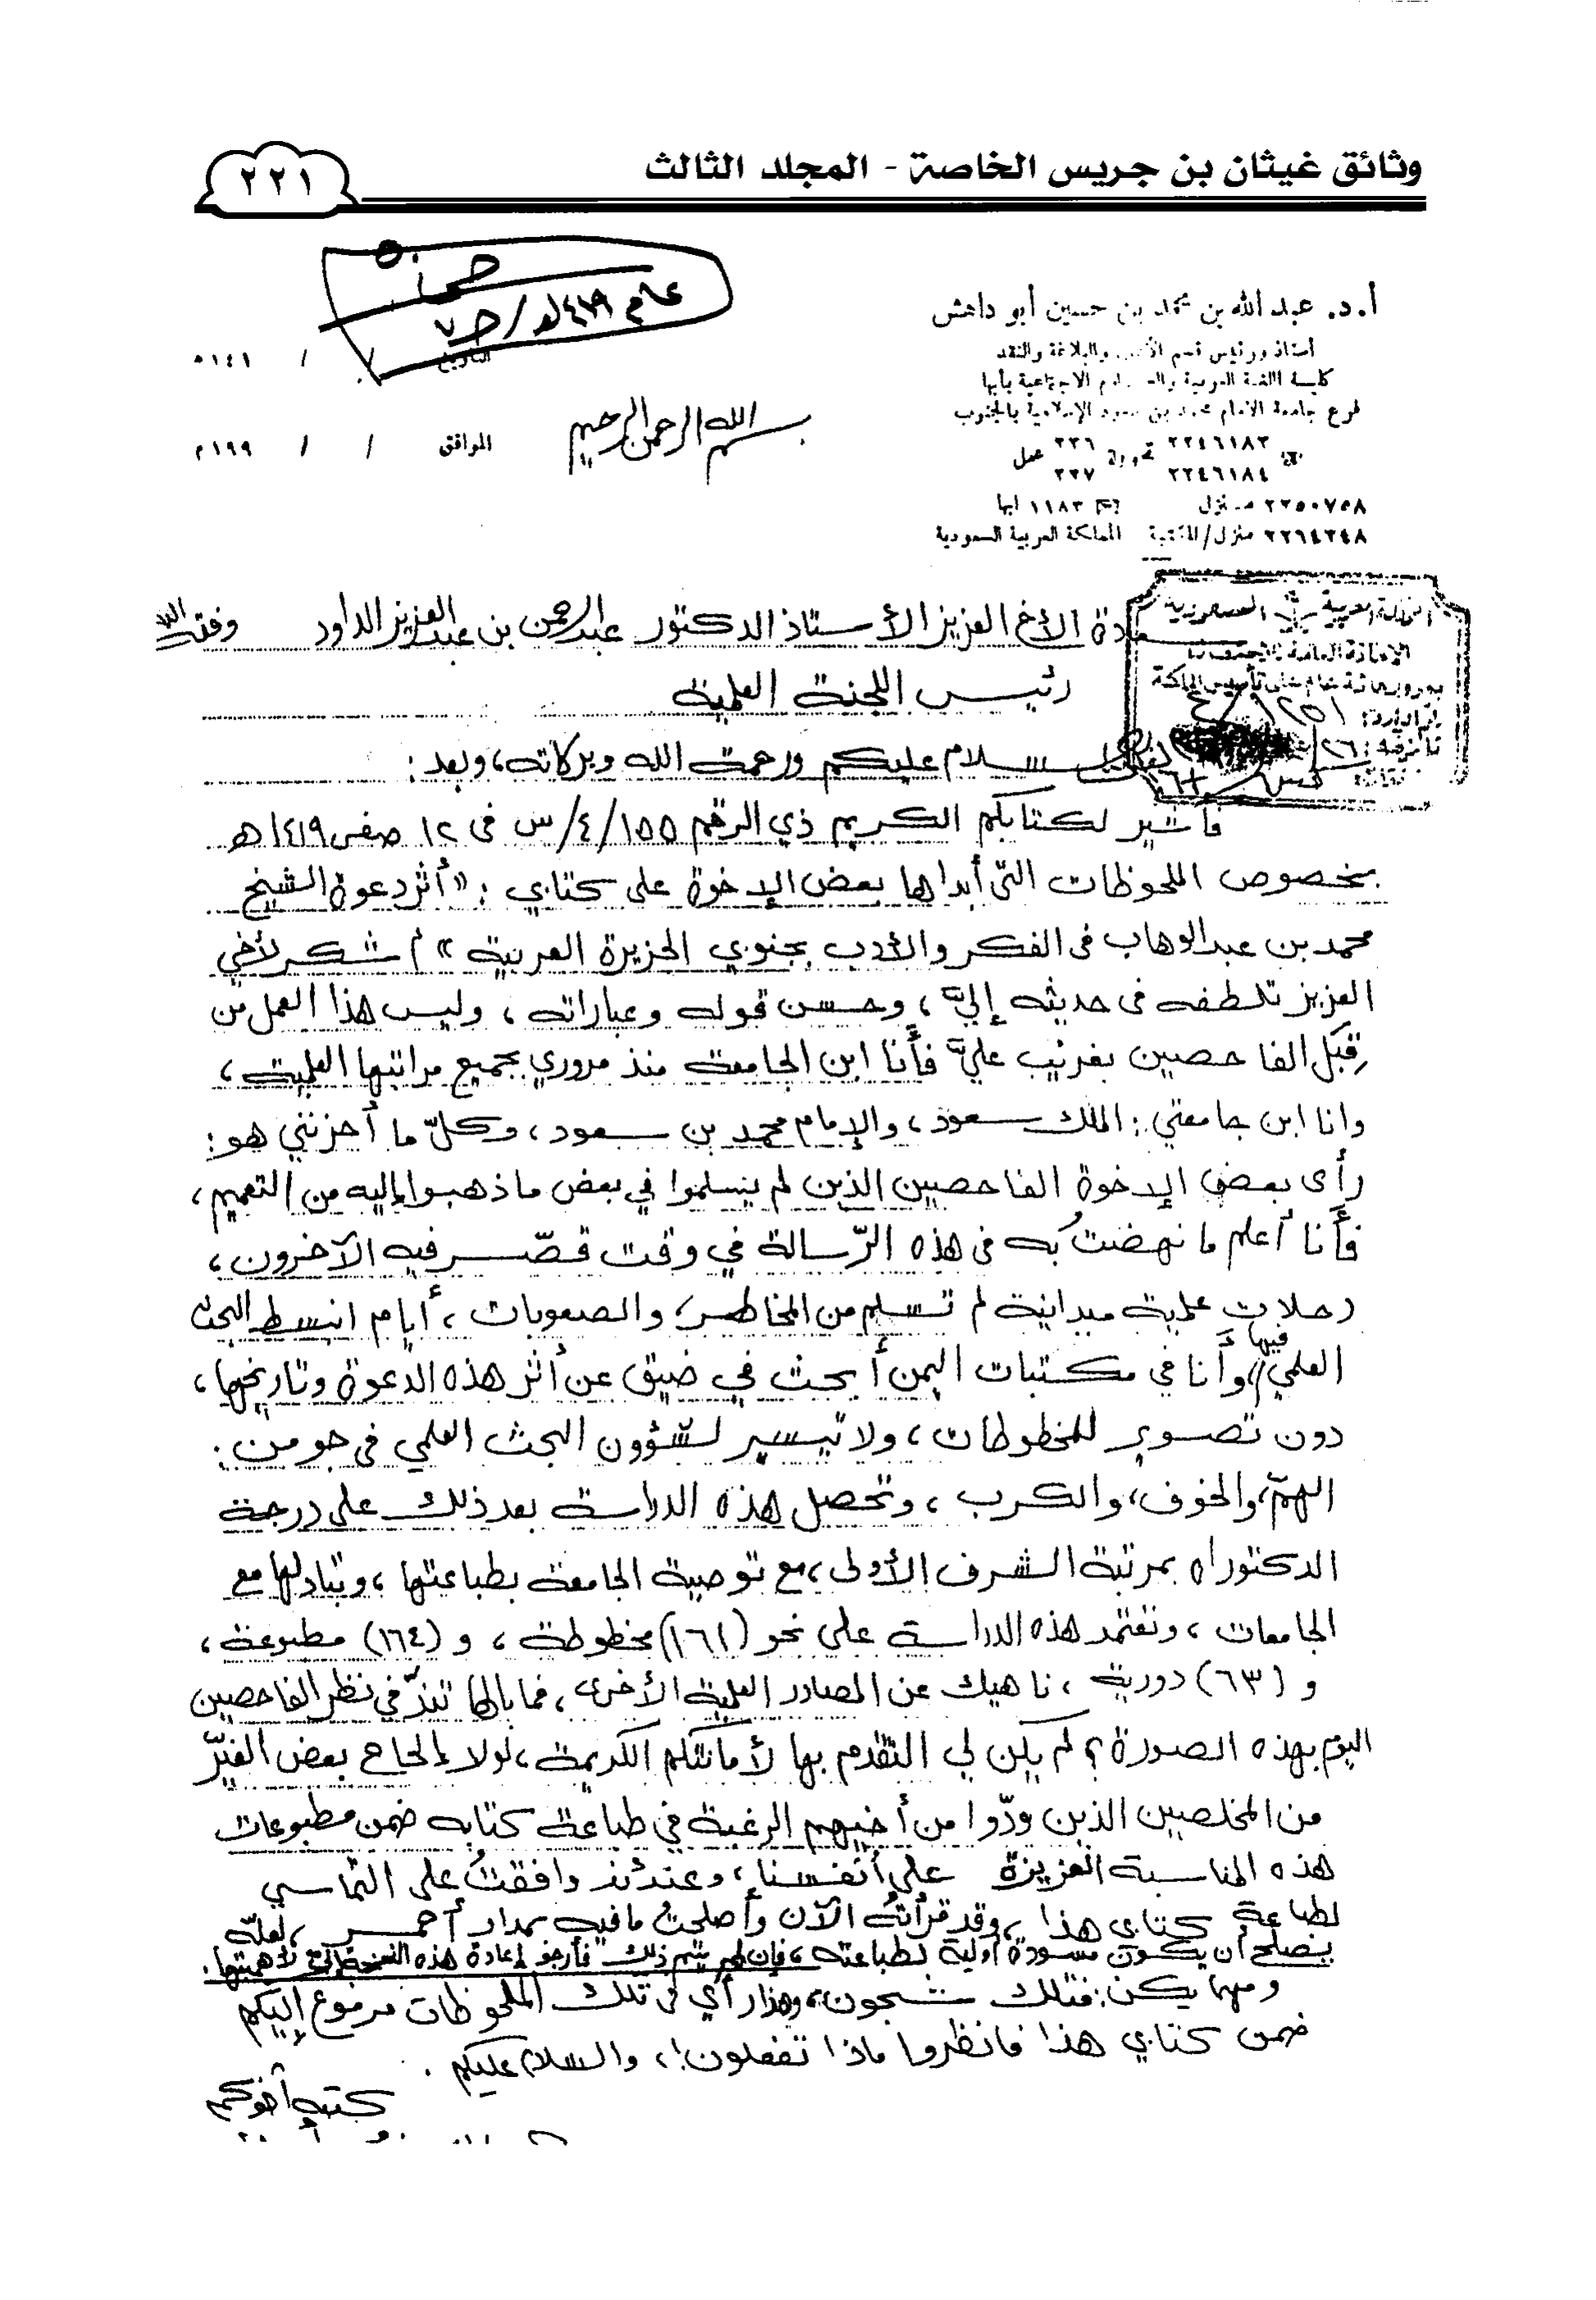 وثائق غيثان بن جريس الخاصة - المجلد الثالث
٢٢١
عام ١٤١٩هـ / ح٧
أ.د. عبد الله بن محمد بن حسين أبو داهش
أستاذ ورئيس قسم الأدب والبلاغة والنقد
كلية اللغة العربية والعلوم الاجتماعية بأبها
فرع جامعة الإمام محمد بن سعود الإسلامية بالجنوب
٢٢٤٦١٨٣ تحويلة ٢٢٦ عمل
٢٢٤٦١٨٤ ٢٢٧
٢٢٥٠٧٥٨ منزل ١١٨٣ ابها
٢٢٦٤٢٤٨ منزل/المكتبة المملكة العربية السعودية
التاريخ / / ١٤١هـ
الموافق / / ١٩٩م
بسم الله الرحمن الرحيم
المملكة العربية السعودية
الأمانة العامة للاحتفال
بمرور مائة عام على تأسيس المملكة
سعادة الأخ العزيز الأستاذ الدكتور عبدالرحمن بن عبدالعزيز الداود وفقه الله
رئيس اللجنة العلمية
السلام عليكم ورحمة الله وبركاته، وبعد:
فأشير لكتابكم الكريم ذي الرقم ١٥٥/٤/س في ١٢ صفر ١٤١٩هـ
بخصوص اللحوظات التي أبداها بعض الإخوة على كتابي: «أثر دعوة الشيخ
محمد بن عبدالوهاب في الفكر والأدب بجنوبي الجزيرة العربية» أشكر لأخي
العزيز تلطفه في حديثه إليَّ، وحسن قوله وعباراته، وليس هذا العمل من
قِبَل الفاحصين بغريب عليَّ فأنا ابن الجامعة منذ مروري بجميع مراتبها العلمية،
وانا ابن جامعتي: الملك سعود، والإمام محمد بن سعود، وكلّ ما أحزنني هو:
رأى بعض الإخوة الفاحصين الذين لم يسلموا في بعض ما ذهبوا إليه من التعميم،
فأنا أعلم ما نهضتُ به في هذه الرّسالة في وقت قصّر فيه الآخرون،
رحلات علمية ميدانية لم تسلم من المخاطر، والصعوبات، أيام انبسط البحث
العلمي فيها، وأنا في مكتبات اليمن أبحث في ضيق عن أثر هذه الدعوة وتاريخها،
دون تصوير للمخطوطات، ولا تيسير لشؤون البحث العلمي في جو من:
الهمّ، والخوف، والكرب، وتحصل هذه الدراسة بعد ذلك على درجة
الدكتوراه بمرتبة الشرف الأولى، مع توصية الجامعة بطباعتها، وتبادلها مع
الجامعات، وتعتمد هذه الدراسة على نحو (١٦١) مخطوطة، و (١٦٤) مطبوعة،
و (٦٣) دورية، ناهيك عن المصادر العلمية الأخرى، فما بالها تندّ في نظر الفاحصين
اليوم بهذه الصورة؟ لم يكن لي التقدم بها لأمانتكم الكريمة، لولا إلحاح بعض الغيّر
من المخلصين الذين ودّوا من أخيهم الرغبة في طباعة كتابه ضمن مطبوعات
هذه المناسبة العزيزة على أنفسنا، وعندئذ وافقتُ على التماسي
لطباعة كتابي هذا، وقد قرأتُه الآن وأصلحتُ ما فيه بمداد أحمر، لعلّه
يصلح أن يكون مسودة أولية لطباعته، فإن لم يتم ذلك فأرجو إعادة هذه النسخة إليّ لأهميتها.
ومهما يكن: فتلك شجون، وهذا رأي في تلك الملحوظات مرفوع إليكم
ضمن كتابي هذا فانظروا ماذا تفعلون!، والسلام عليكم.
كتبه أخوكم